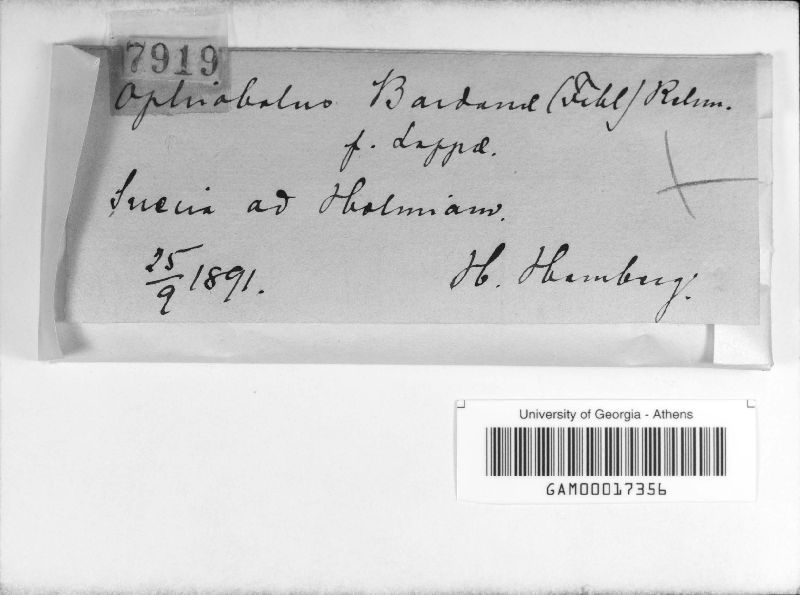 7919
Ophiobolus Bardanæ (Fckl) Rehm.
f. Lappæ.
Suecia ad Holmiam.
25/9 1891.
H. Hamberg.
University of Georgia - Athens
GAM00017356